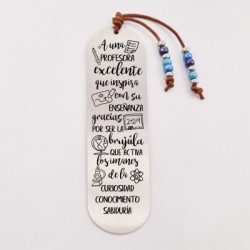 A una
PROFESORA
excelente
que inspira
con su
ENSEÑANZA
gracias 2024
POR SER LA
brújula
QUE ACTIVA
los imanes
de la
CURIOSIDAD
CONOCIMIENTO
SABIDURÍA